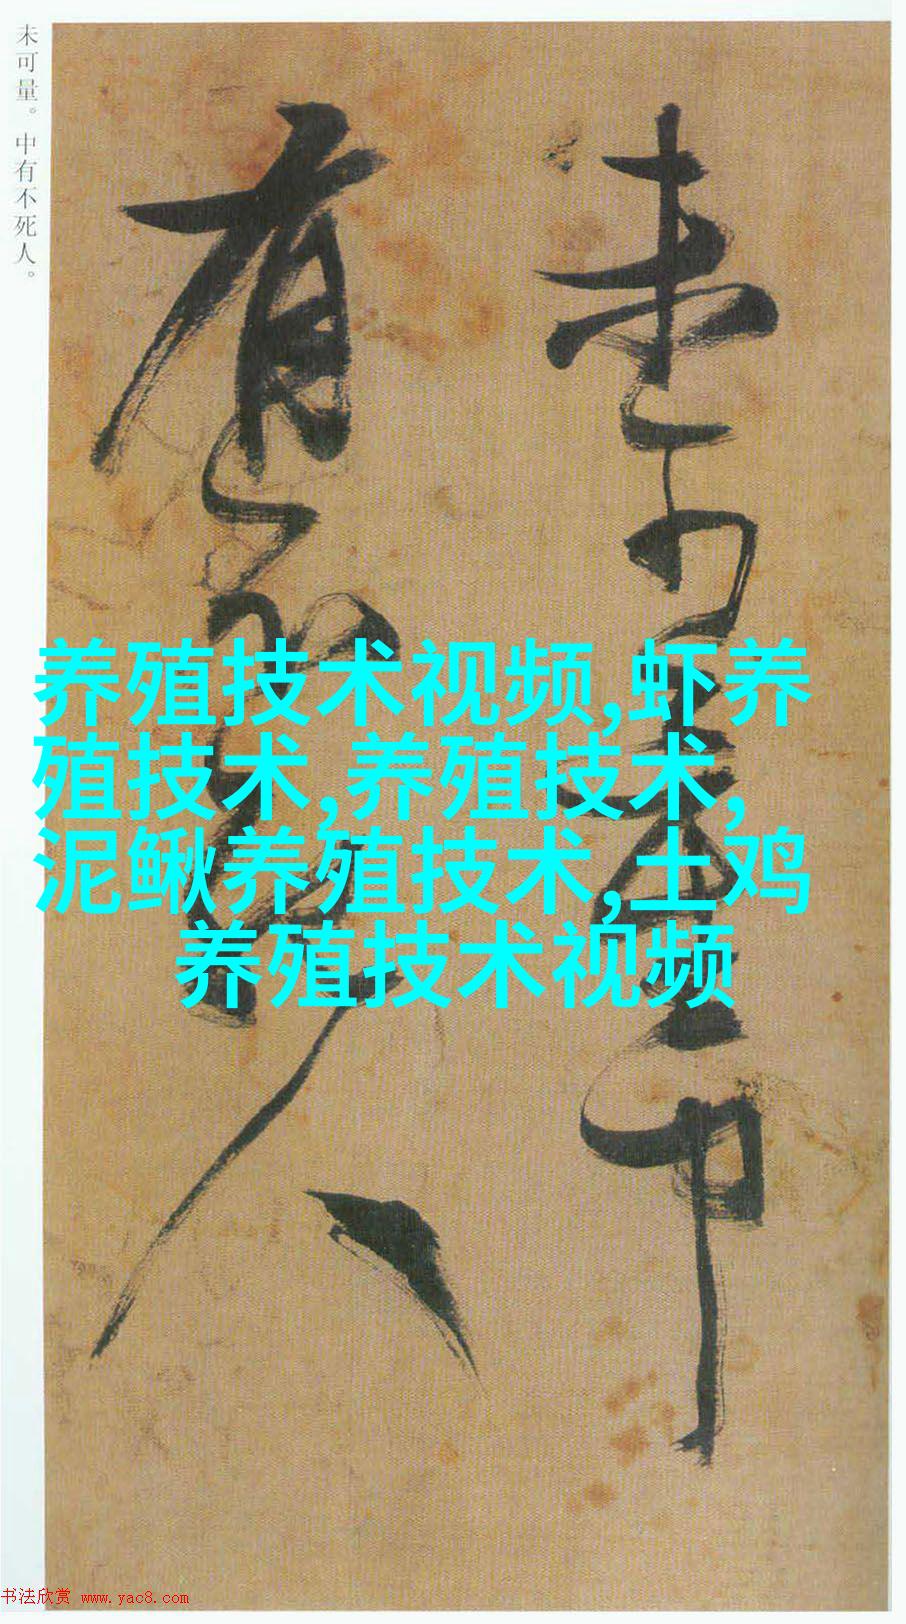 未可量。中有不死人。
未可量中
有不死人
养殖技术视频,虾养
殖技术,养殖技术,
泥鳅养殖技术,土鸡
养殖技术视频
书法欣赏 www.yac8.com